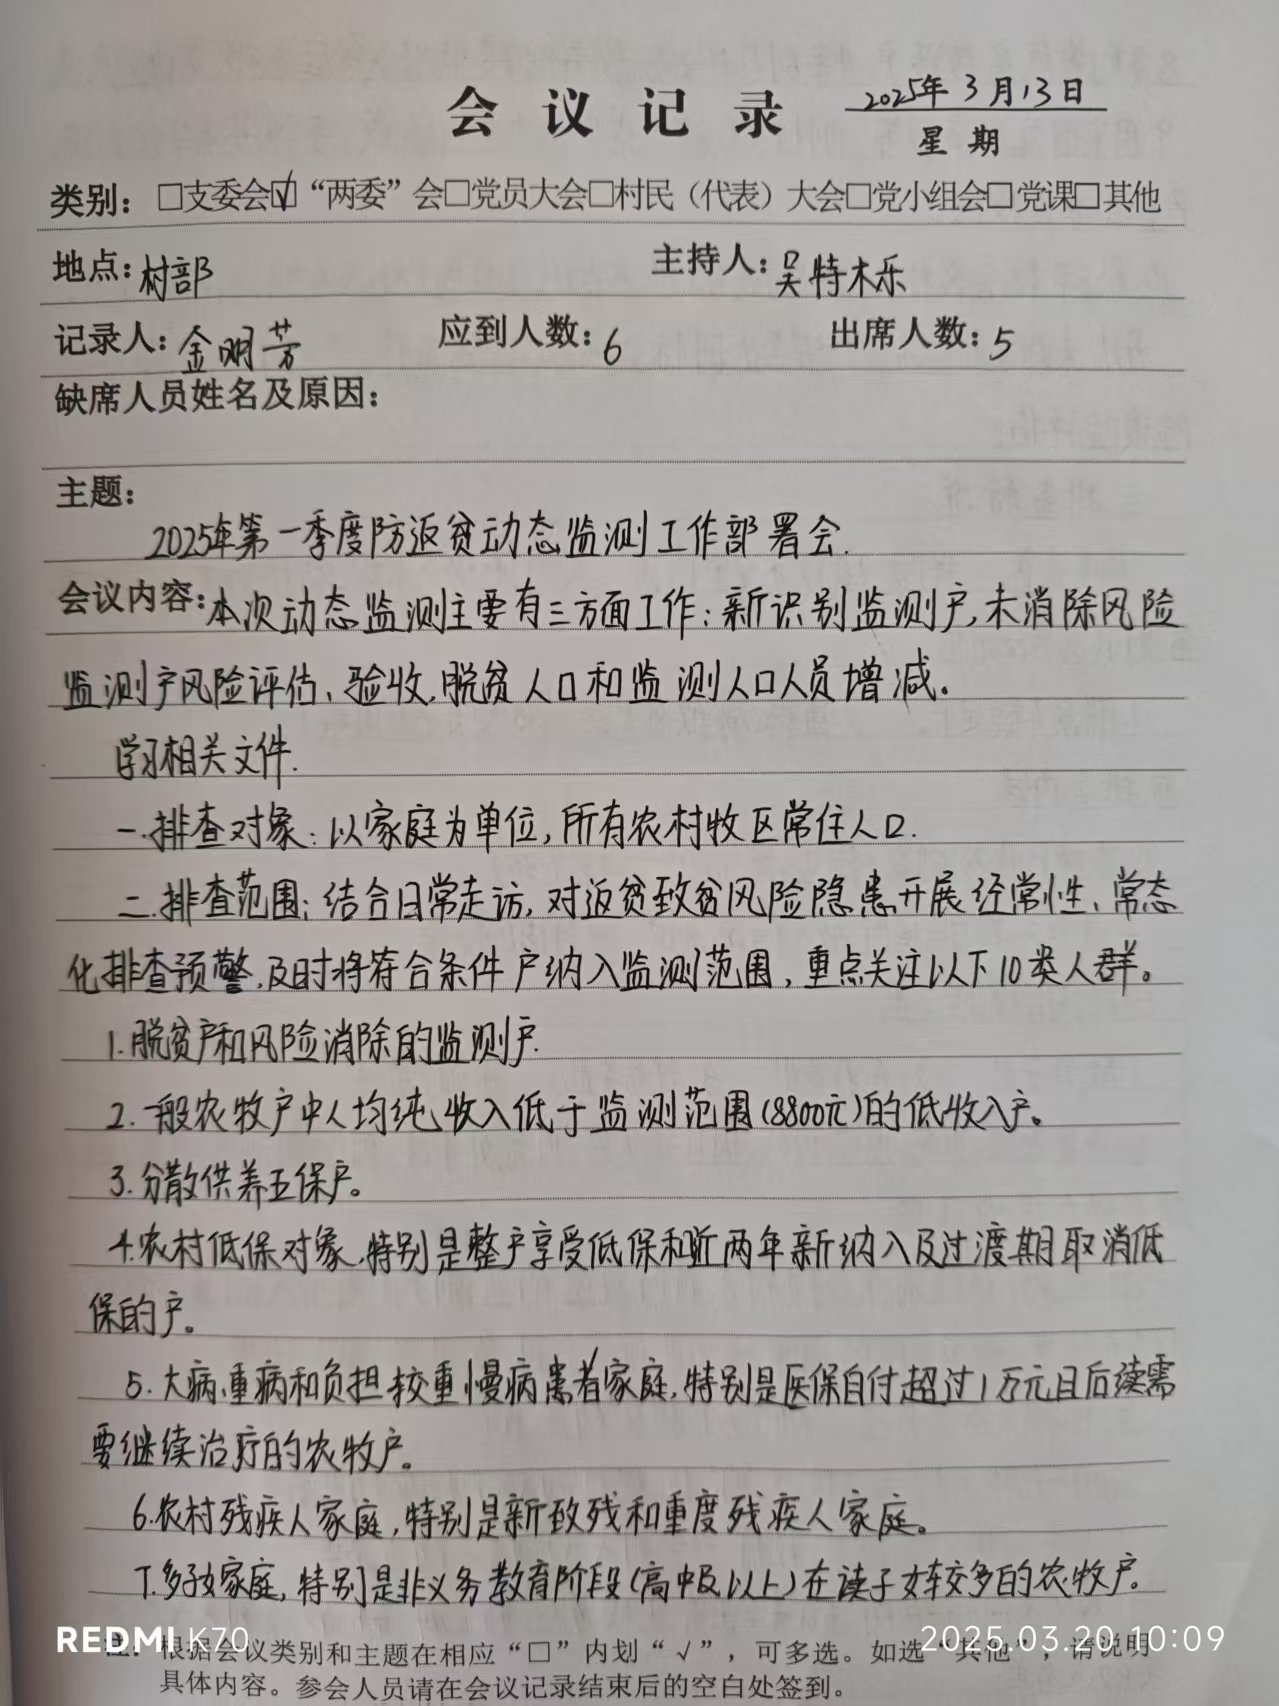 会议记录 2025年3月13日
星期
类别：□支委会☑“两委”会□党员大会□村民（代表）大会□党小组会□党课□其他
地点：村部 主持人：吴特木乐
记录人：金明芳 应到人数：6 出席人数：5
缺席人员姓名及原因：
主题：
2025年第一季度防返贫动态监测工作部署会.
会议内容：本次动态监测主要有三方面工作：新识别监测户,未消除风险
监测户风险评估、验收,脱贫人口和监测人口人员增减。
学习相关文件.
一.排查对象：以家庭为单位,所有农村牧区常住人口.
二.排查范围：结合日常走访,对返贫致贫风险隐患开展经常性、常态
化排查预警,及时将符合条件户纳入监测范围,重点关注以下10类人群。
1.脱贫户和风险消除的监测户.
2.一般农牧户中人均纯收入低于监测范围(8800元)的低收入户。
3.分散供养五保户。
4.农村低保对象,特别是整户享受低保和近两年新纳入及过渡期取消低
保的户。
5.大病,重病和负担较重慢病患者家庭,特别是医保自付超过1万元且后续需
要继续治疗的农牧户。
6.农村残疾人家庭,特别是新致残和重度残疾人家庭。
7.多孩家庭,特别是非义务教育阶段(高中及以上)在读子女较多的农牧户.
注：根据会议类别和主题在相应“□”内划“√”，可多选。如选“其他”，请说明
具体内容。参会人员请在会议记录结束后的空白处签到。
REDMI K70 2025.03.20 10:09